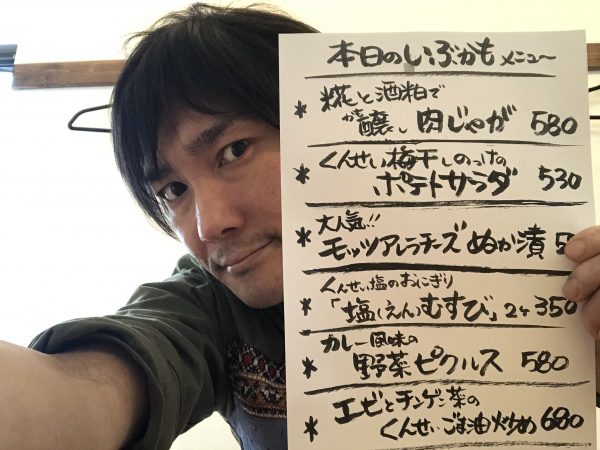 本日のいぶかもメニュー
* 糀と酒粕で
醸し 肉じゃが 580
かも
くんせい梅干しのっけの
* ポテトサラダ 530
大人気!!
* モッツアレラチーズ ぬか漬 5
くんせい塩のおにぎり
* 「塩(えん)むすび」2ヶ 350
カレー風味の
* 野菜ピクルス 580
エビとチンゲン菜の
* くんせいごま油炒め 680